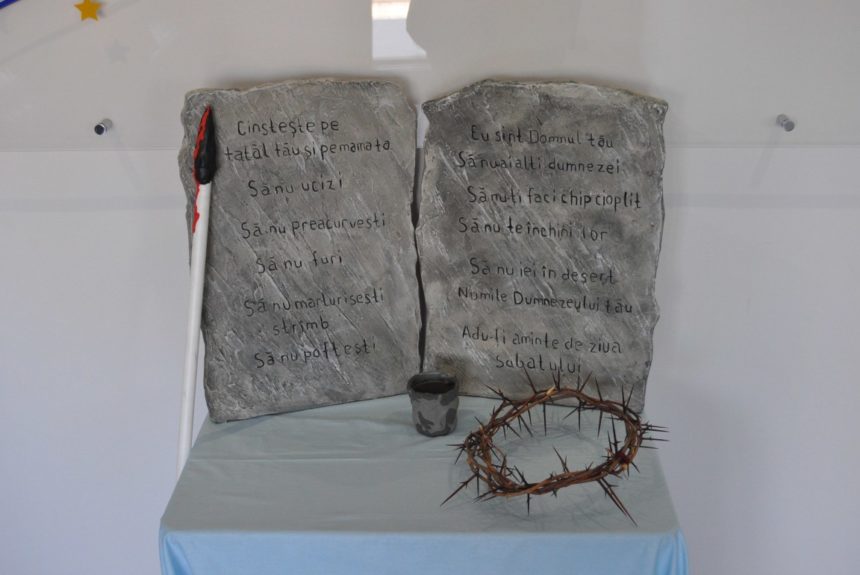 Cinstește pe
tatăl tău și pe mama ta
Să nu ucizi
Să nu preacurvești
Să nu furi
Să nu mărturisești
strîmb
Să nu poftești
Eu sint Domnul tău
Să nu ai alti dumnezei
Să nu-ti faci chip cioplit
Să nu te închini lor
Să nu iei în deșert
Numile Dumnezeului tău
Adu-ti aminte de ziua
Sabatului